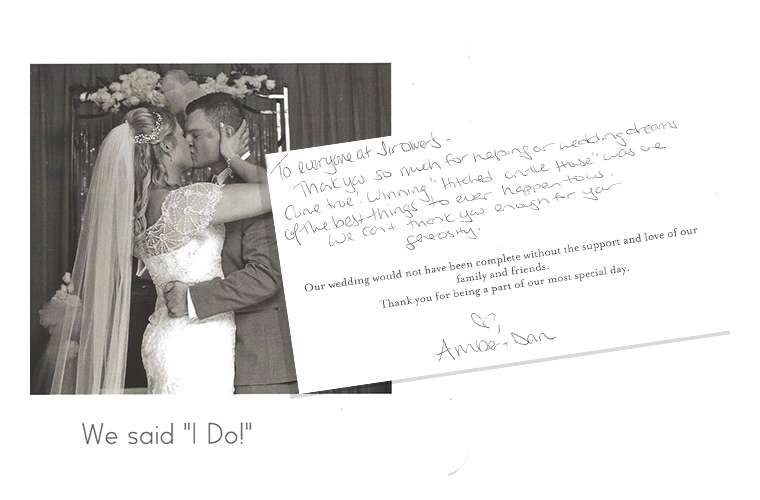 To everyone at Sirowers -
Thank you so much for helping our wedding dreams
come true! Winning "Hitched on the House" was one
of the best things to ever happen to us.
We can't thank you enough for your
generosity.
Our wedding would not have been complete without the support and love of our
family and friends.
Thank you for being a part of our most special day.
Amber + Dan
We said "I Do!"